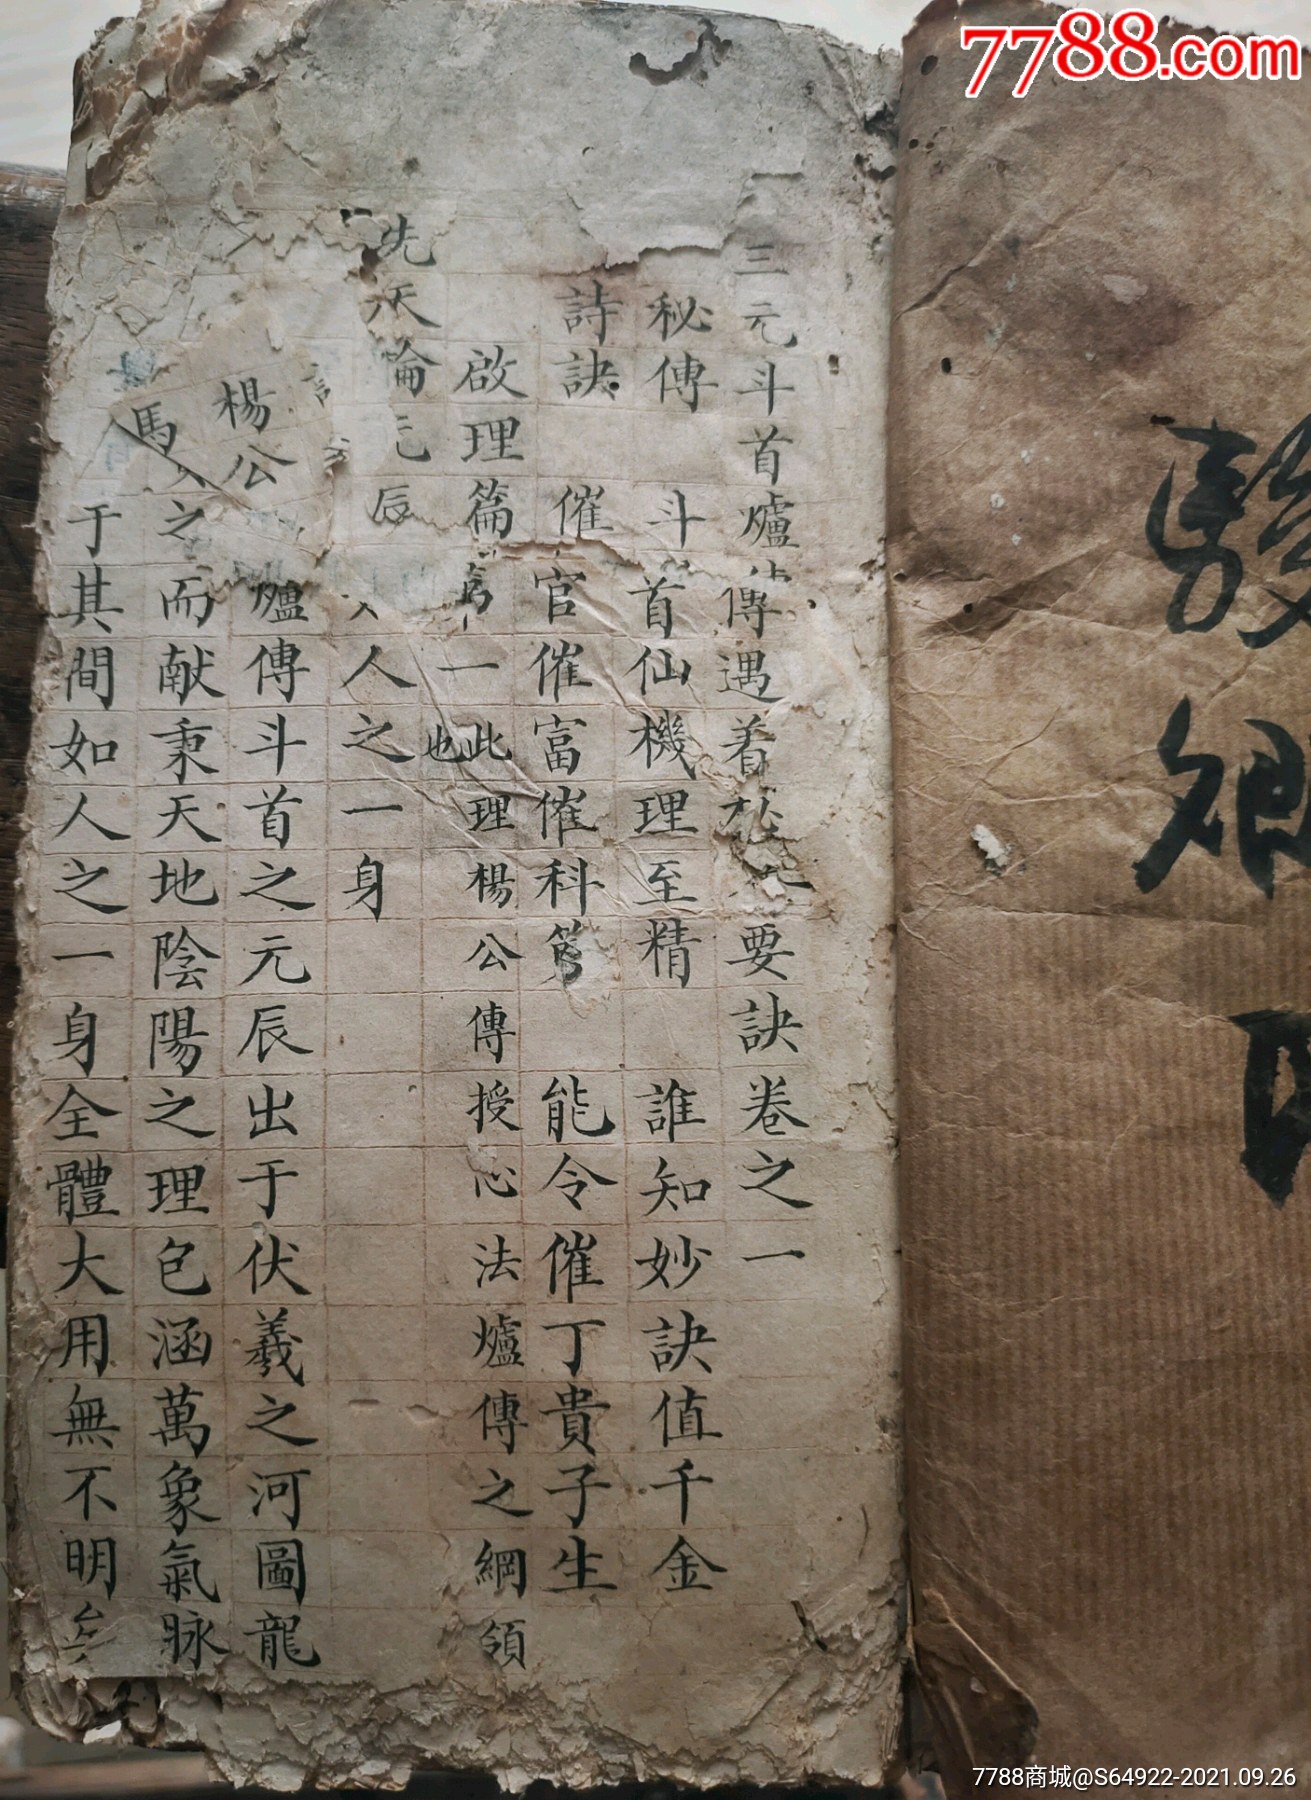 7788.com
三元斗首爐傳遇着要訣卷之一
秘傳 斗首仙機理至精 誰知妙訣值千金
詩訣 催官催富催科第 能令催丁貴子生
啟理篇 一 此理楊公傳授心法爐傳之綱領也
先天倫元辰 人之一身
楊公 爐傳斗首之元辰出于伏羲之河圖龍
馬 之而献秉天地陰陽之理包涵萬象氣脉
于其間如人之一身全體大用無不明矣
7788商城@S64922-2021.09.26